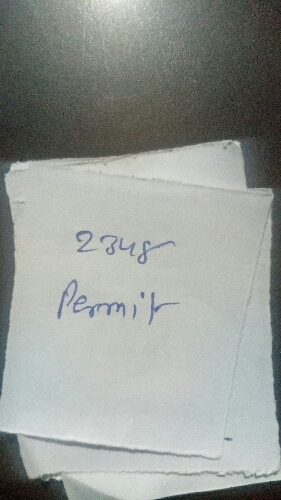 2348
Permit